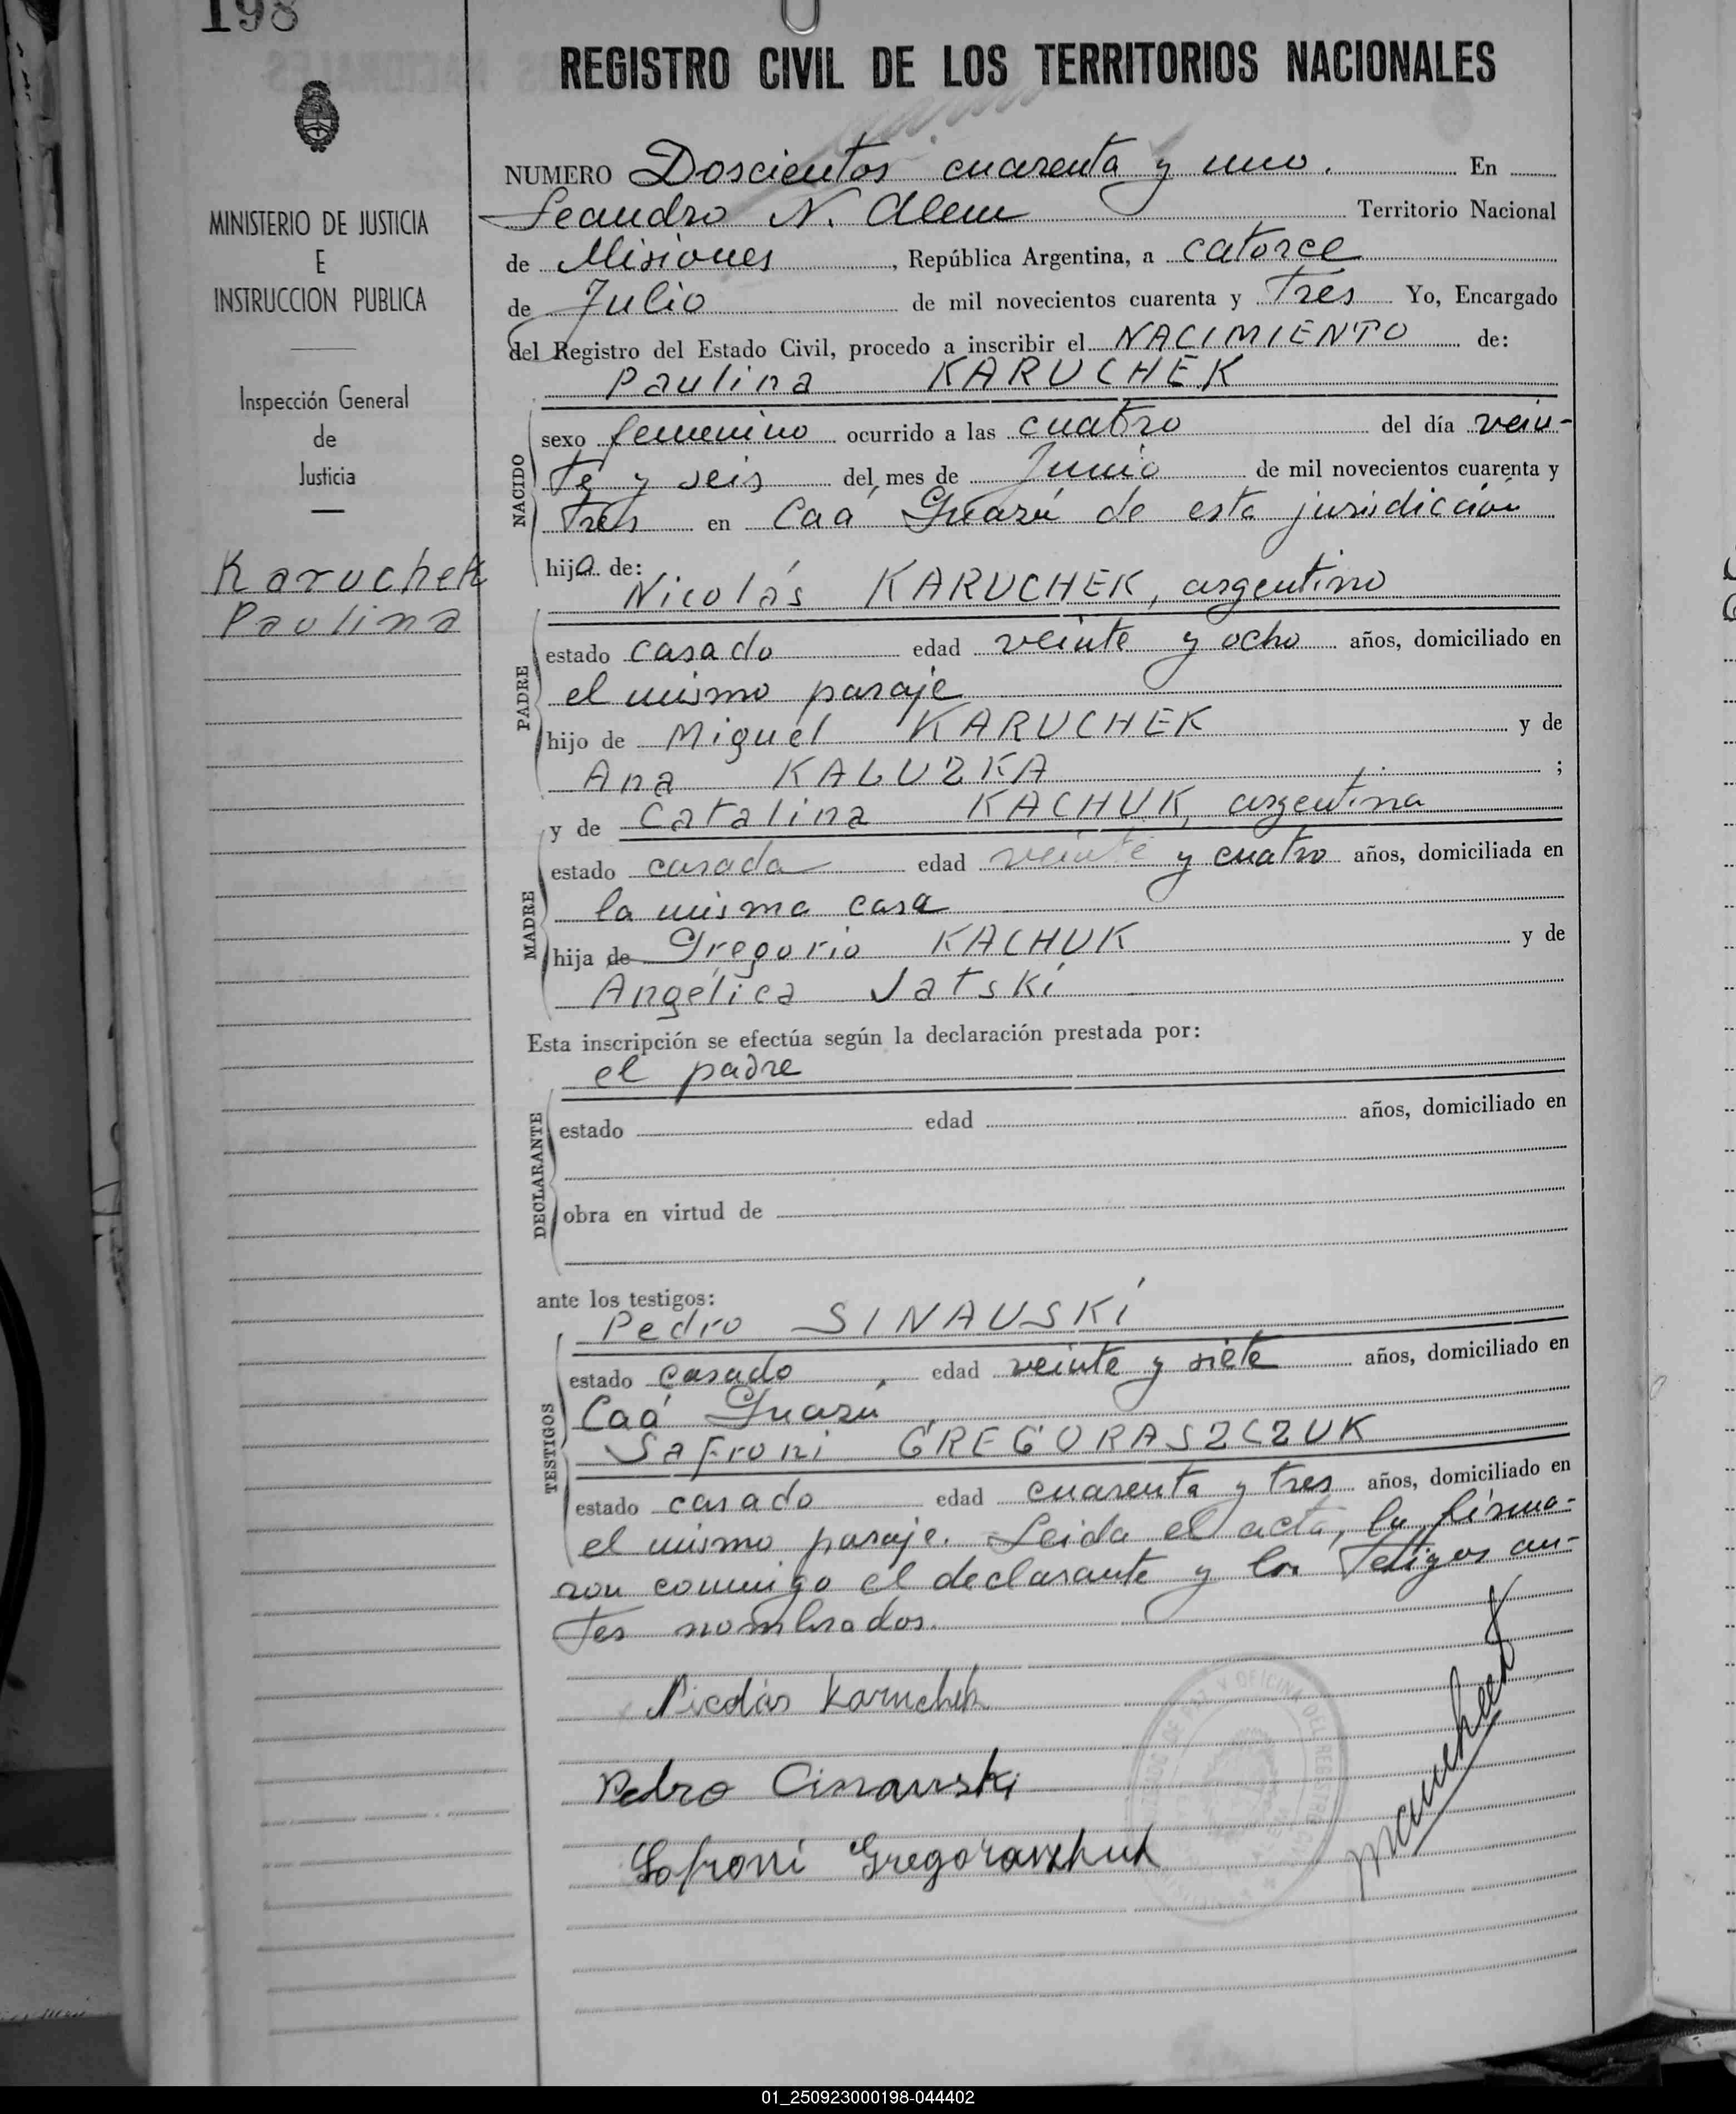 198
REGISTRO CIVIL DE LOS TERRITORIOS NACIONALES
MINISTERIO DE JUSTICIA
E
INSTRUCCION PUBLICA
Inspección General
de
Justicia
Karuchek
Paulina
NUMERO Doscientos cuarenta y uno. En
Leandro N. Alem Territorio Nacional
de Misiones, República Argentina, a catorce
de Julio de mil novecientos cuarenta y Tres Yo, Encargado
del Registro del Estado Civil, procedo a inscribir el NACIMIENTO de:
Paulina KARUCHEK
NACIDO
sexo femenino ocurrido a las cuatro del día vein-
te y seis del mes de Junio de mil novecientos cuarenta y
tres en Caá Guazú de esta jurisdicción
hija de:
Nicolás KARUCHEK, argentino
PADRE
estado casado edad veinte y ocho años, domiciliado en
el mismo paraje
hijo de Miguel KARUCHEK y de
Ana KALUZKA ;
y de Catalina KACHUK, argentina
MADRE
estado casada edad veinte y cuatro años, domiciliada en
la misma casa
hija de Gregorio KACHUK y de
Angélica Jatski
Esta inscripción se efectúa según la declaración prestada por:
el padre
DECLARANTE
estado edad años, domiciliado en
obra en virtud de
ante los testigos:
Pedro SINAUSKI
TESTIGOS
estado casado, edad veinte y siete años, domiciliado en
Caá Guazú
Safroni GREGORASZCZUK
estado casado edad cuarenta y tres años, domiciliado en
el mismo paraje. Leida el acta, la firma-
ron conmigo el declarante y los Testigos an-
tes nombrados.
Nicolás Karuchek
Pedro Cinauski
Sofroni Gregoraschuk
OFICINA DEL REGISTRO CIVIL
01_250923000198-044402